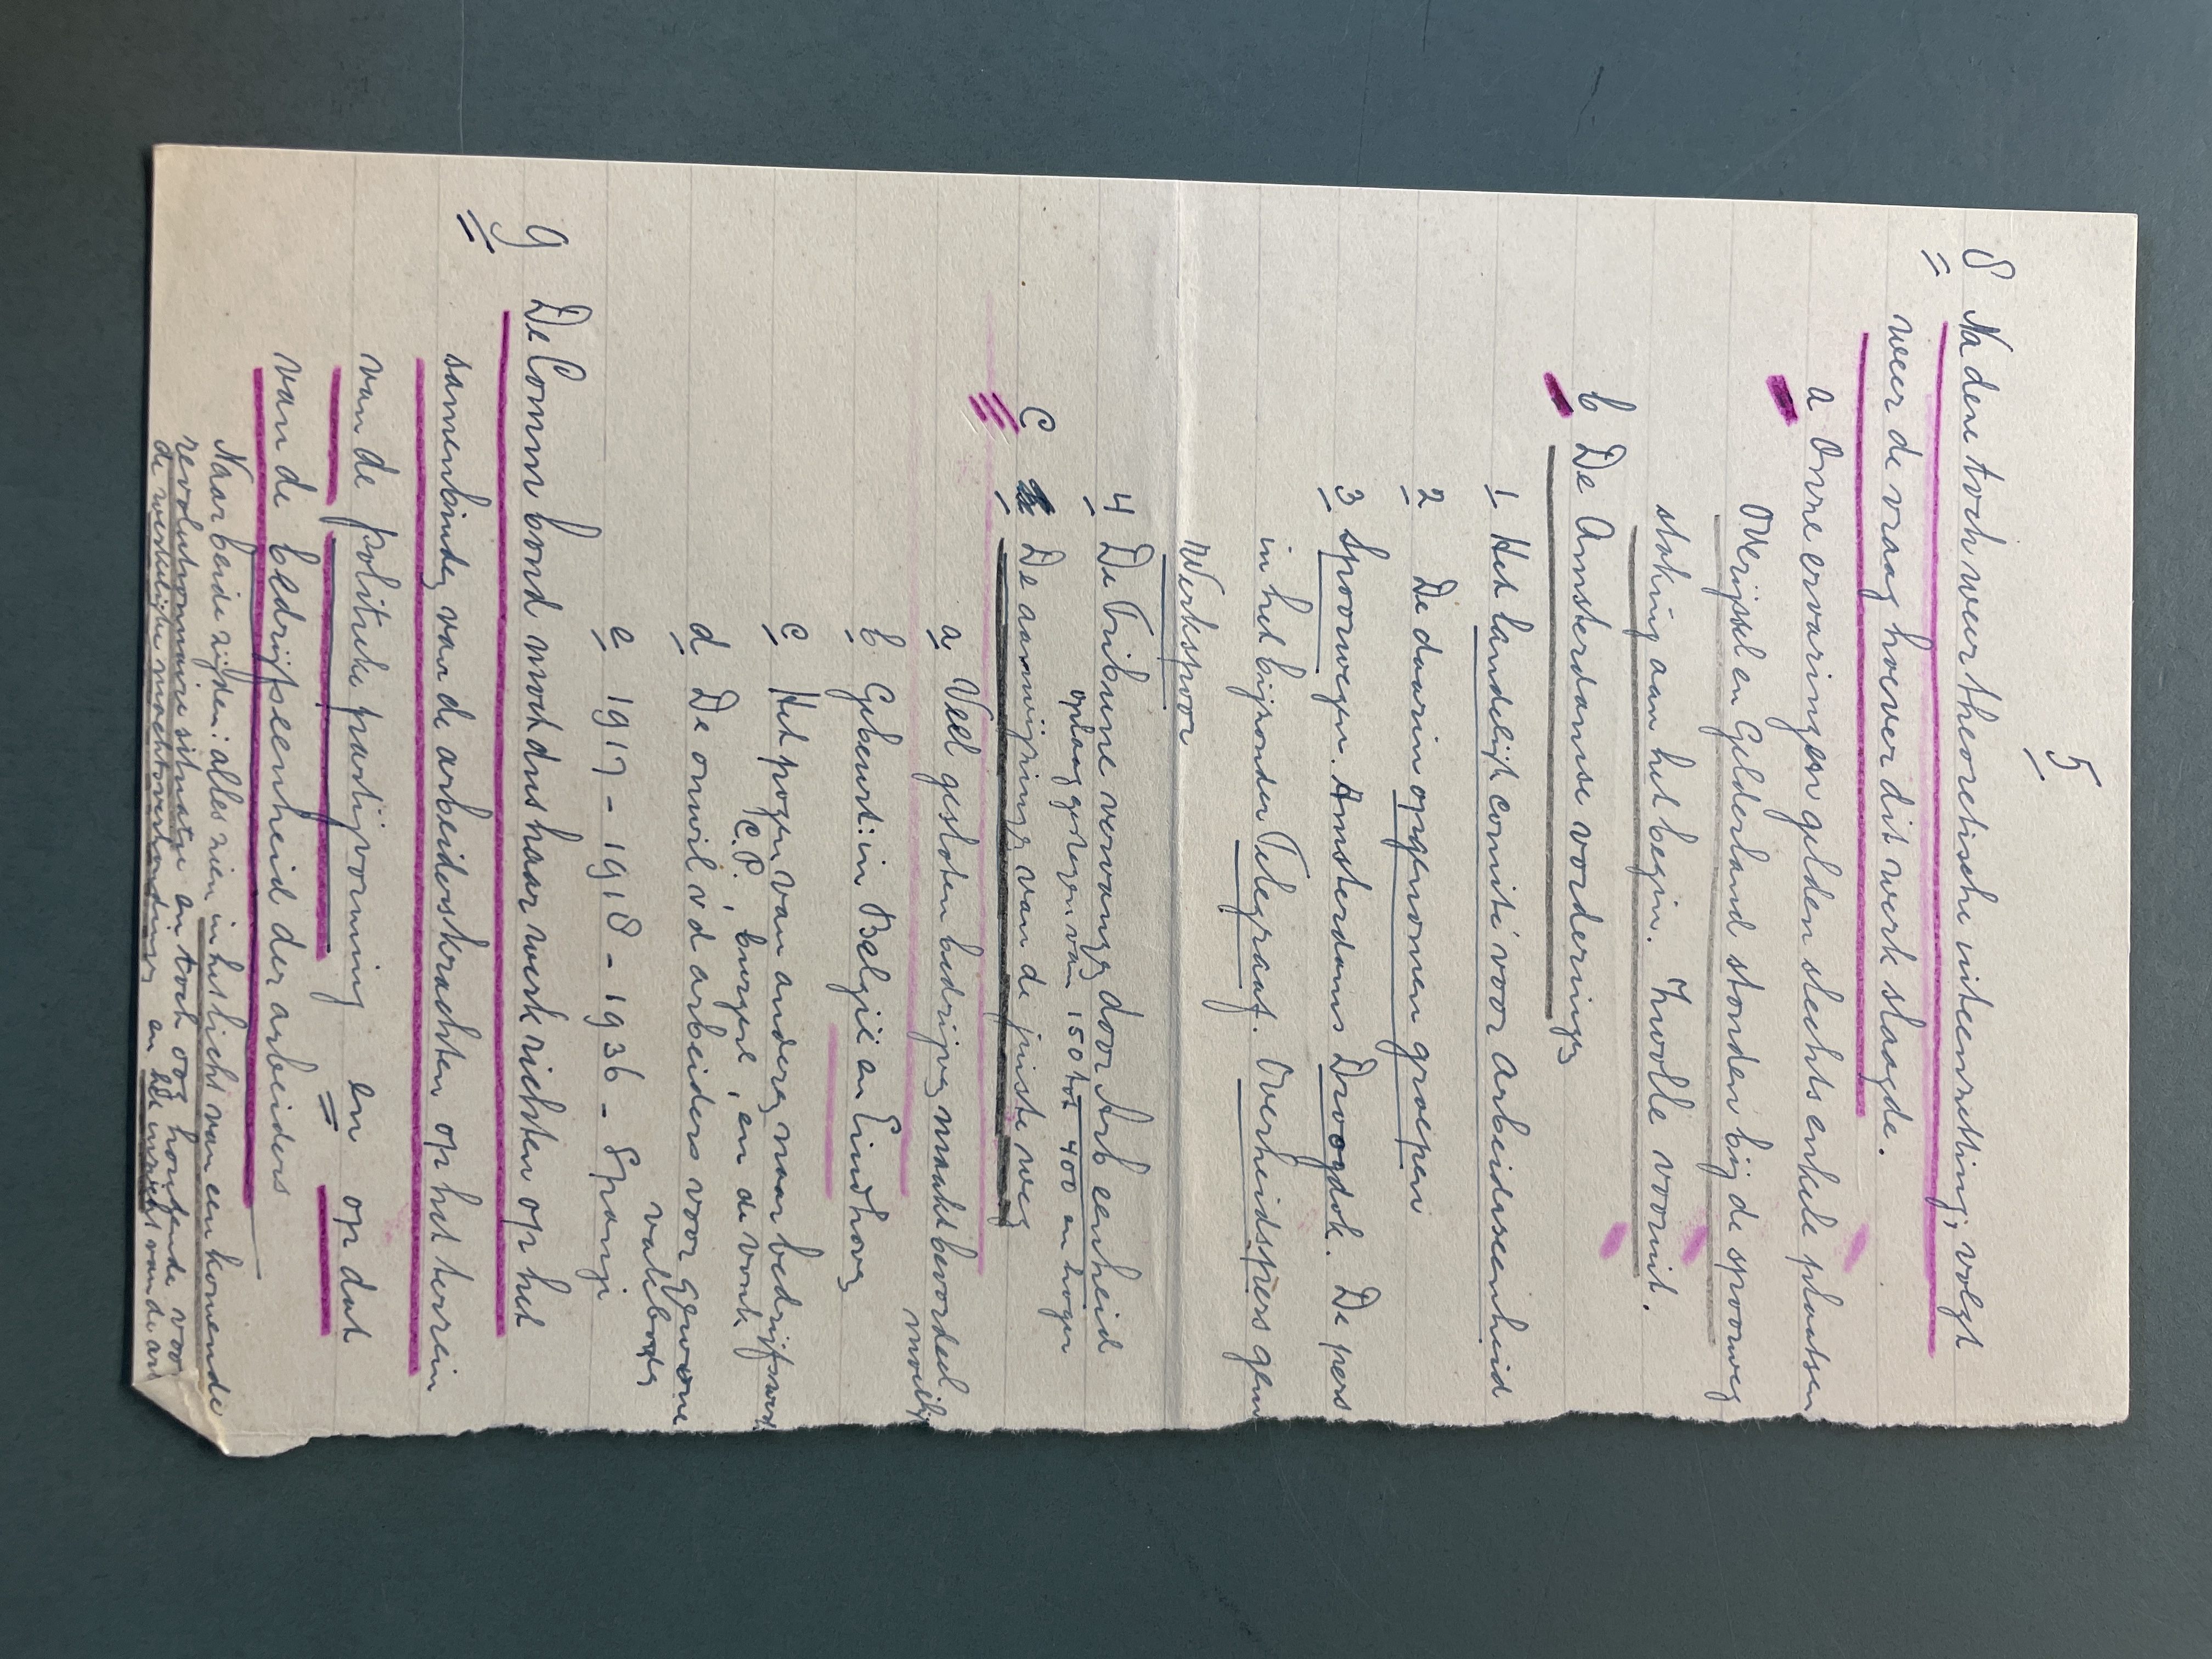 5
8 Na deze toch weer theoretische uiteenzetting, volgt
weer de vraag hoever dit werk slaagde.
a Onze ervaringen gelden slechts enkele plaatsen
Overijsel en Gelderland stonden bij de spoorweg
staking aan het begin. Zwolle vooruit.
b De Amsterdamse vorderingen
1 Het landelijk comité voor arbeidseenheid
2 De daarin opgenomen groepen
3 Spoorwegen. Amsterdams Droogdok. De pers
in het bijzonder Telegraaf. Overheidspers
Werkspoor
4 De Tribune vervangen door Arb eenheid
oplaag gestegen van 150 tot 400 en hoger
C De aanwijzingen van de juiste weg
a Veel gesloten bedrijven maakt beoordeel
moeilijk
b Gebeurt: in België en Eindhoven
c Het pogen van anderen naar bedrijfs
C.P., burgerl, en de vonk
d De onwil v d arbeiders voor gewone
vakbonden
e 1917 - 1918 - 1936 - Spanje
9 De Comm bond moet dus haar werk richten op het
samenbinden van de arbeiderskrachten op het terrein
van de politieke partijvorming en op dat
van de bedrijfseenheid der arbeiders
Naar beide zijden: alles zien in het licht van een komende
revolutionnaire situatie en toch oog houdende voor
de werkelijke machtsverhoudingen en de inzicht van de arb